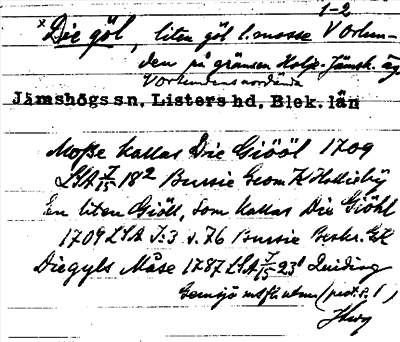 1-2
× Die göl, liten göl l. mosse V Orlun-
den på gränsen Holje-Jämsh. äg.
Vorlundens nordända
Jämshögs sn, Listers hd, Blek. län
Moße kallas Die Giööl 1709
LSA 7/15 18² Bussie Geom K Hollieby
En liten Giöll, som kallas Die Giöhl
1709 LSA J:3 s. 76 Bussie Beskr.
Diegyls Måse 1787 LSA 7/15 23¹ Quiding
Gemsjö (prot. s. 1)